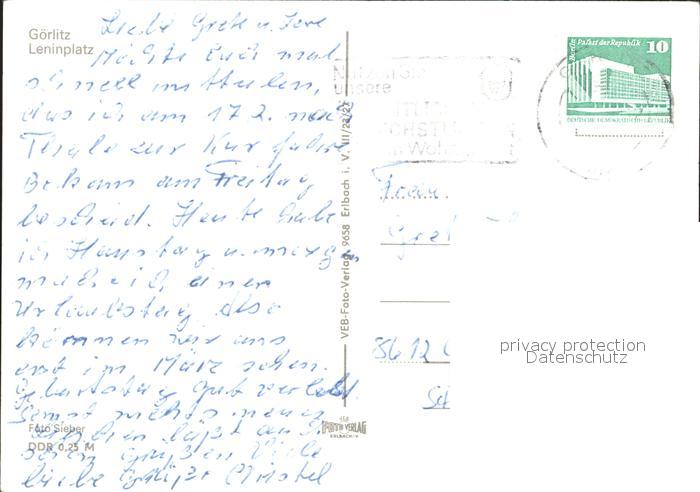 Görlitz
Leninplatz
Liebe Grete u.
Möchte Euch mal
schnell mitteilen,
das ich am 17.2. nach
Thale zur Kur fahre
Bekam am Freitag
bescheid. Heute habe
ich Haustag u. morgen
mach ich einen
Urlaubstag also
können wir uns
erst im März sehen.
Geburtstag gut verlebt.
Sonst nichts neues
läßt
grüßen Viele
liebe Grüße Christel
Foto Sieber
DDR 0,25 M
VEB-Foto-Verlag 9658 Erlbach i. V. III/23/27
FOTO-VERLAG
ERLBACH/V.
Nutzen Sie
unsere
Berlin, Palast der Republik
10
DEUTSCHE DEMOKRATISCHE REPUBLIK
Frau
Gret
8612
privacy protection
Datenschutz